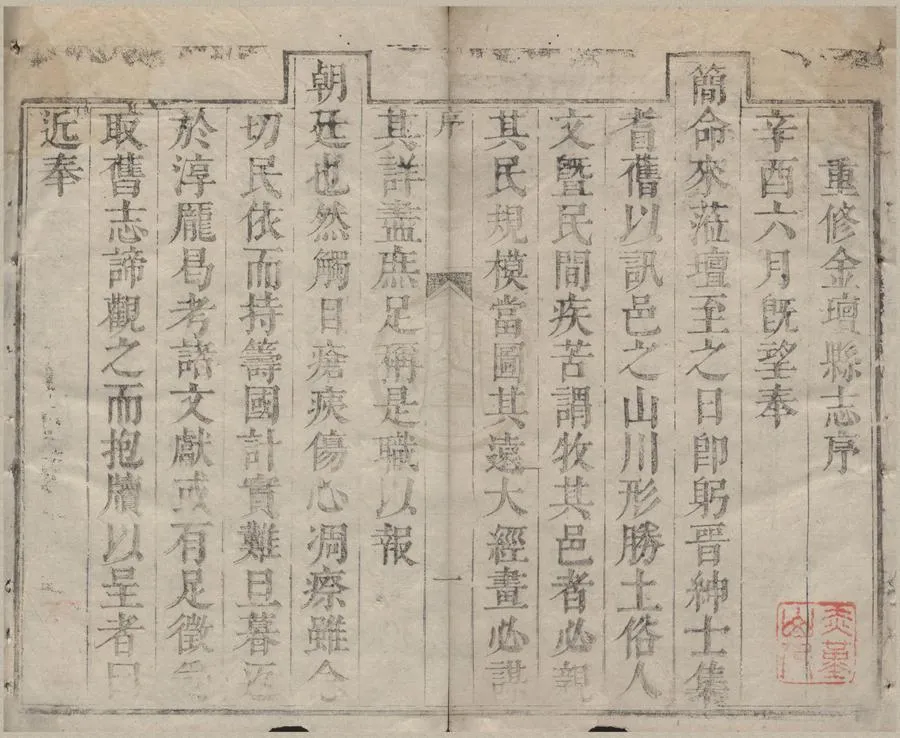 重修金壇縣志序
辛酉六月既望奉
簡命來蒞壇至之日卽躬晉紳士集
耆舊以訊邑之山川形勝土俗人
文曁民間疾苦謂牧其邑者必親
其民規模當圖其遠大經畫必謀
序
一
其詳盡庶足稱是職以報
朝廷也然觸目瘡痍傷心凋瘵雖念
切民依而持籌國計實難旦暮返
於淳龎曷考諸文獻或有足徵
取舊志諦觀之而抱牘以呈者曰
近奉